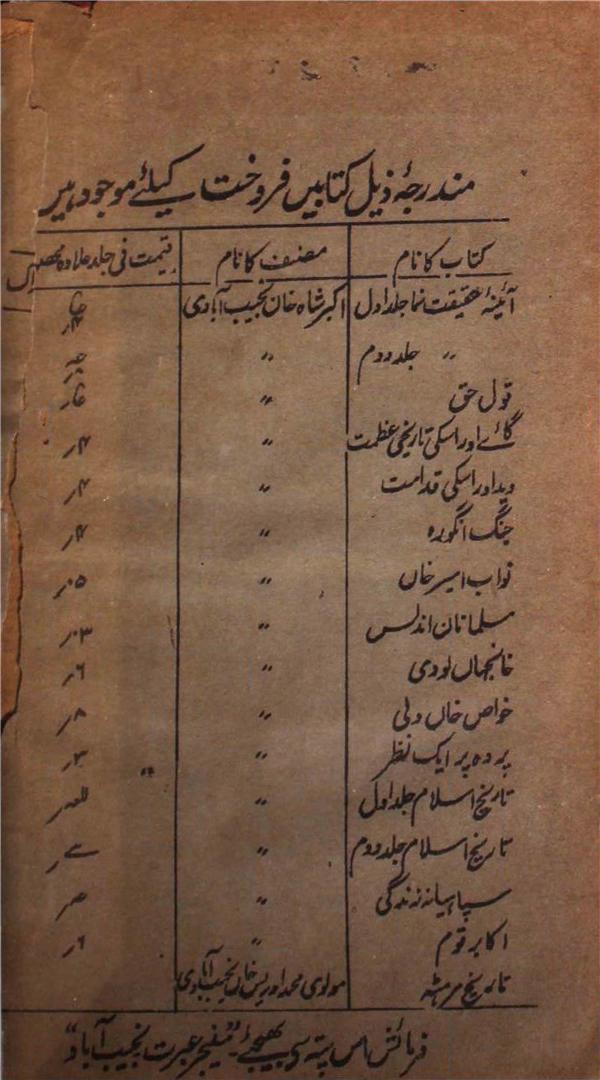 مندرجۂ ذیل کتابیں فروخت کیلئے موجود ہیں
کتاب کا نام مصنف کا نام قیمت فی جلد علاوہ محصول
آئینۂ حقیقت نما جلد اول اکبر شاہ خان نجیب آبادی
〃 جلد دوم 〃
قول حق 〃
گائے اور اسکی تاریخی عظمت 〃 ۴ر
وید اور اسکی قدامت 〃 ۴ر
جنگ انگورہ 〃 ۴ر
نواب امیر خاں 〃 ۵ر
مسلمانان اندلس 〃 ۳ر
خانجہاں لودی 〃 ۶ر
خواص خاں ولی 〃 ۸ر
پردہ پر ایک نظر 〃 ۳ر
تاریخ اسلام جلد اول 〃
تاریخ اسلام جلد دوم 〃
سپاہیانہ زندگی 〃
اکابر قوم 〃 ۶ر
تاریخ مرہٹہ مولوی محمد ادریس خاں نجیب آبادی
فرمائش اس پتہ سے بھیجئے۔ "منیجر عبرت نجیب آباد"